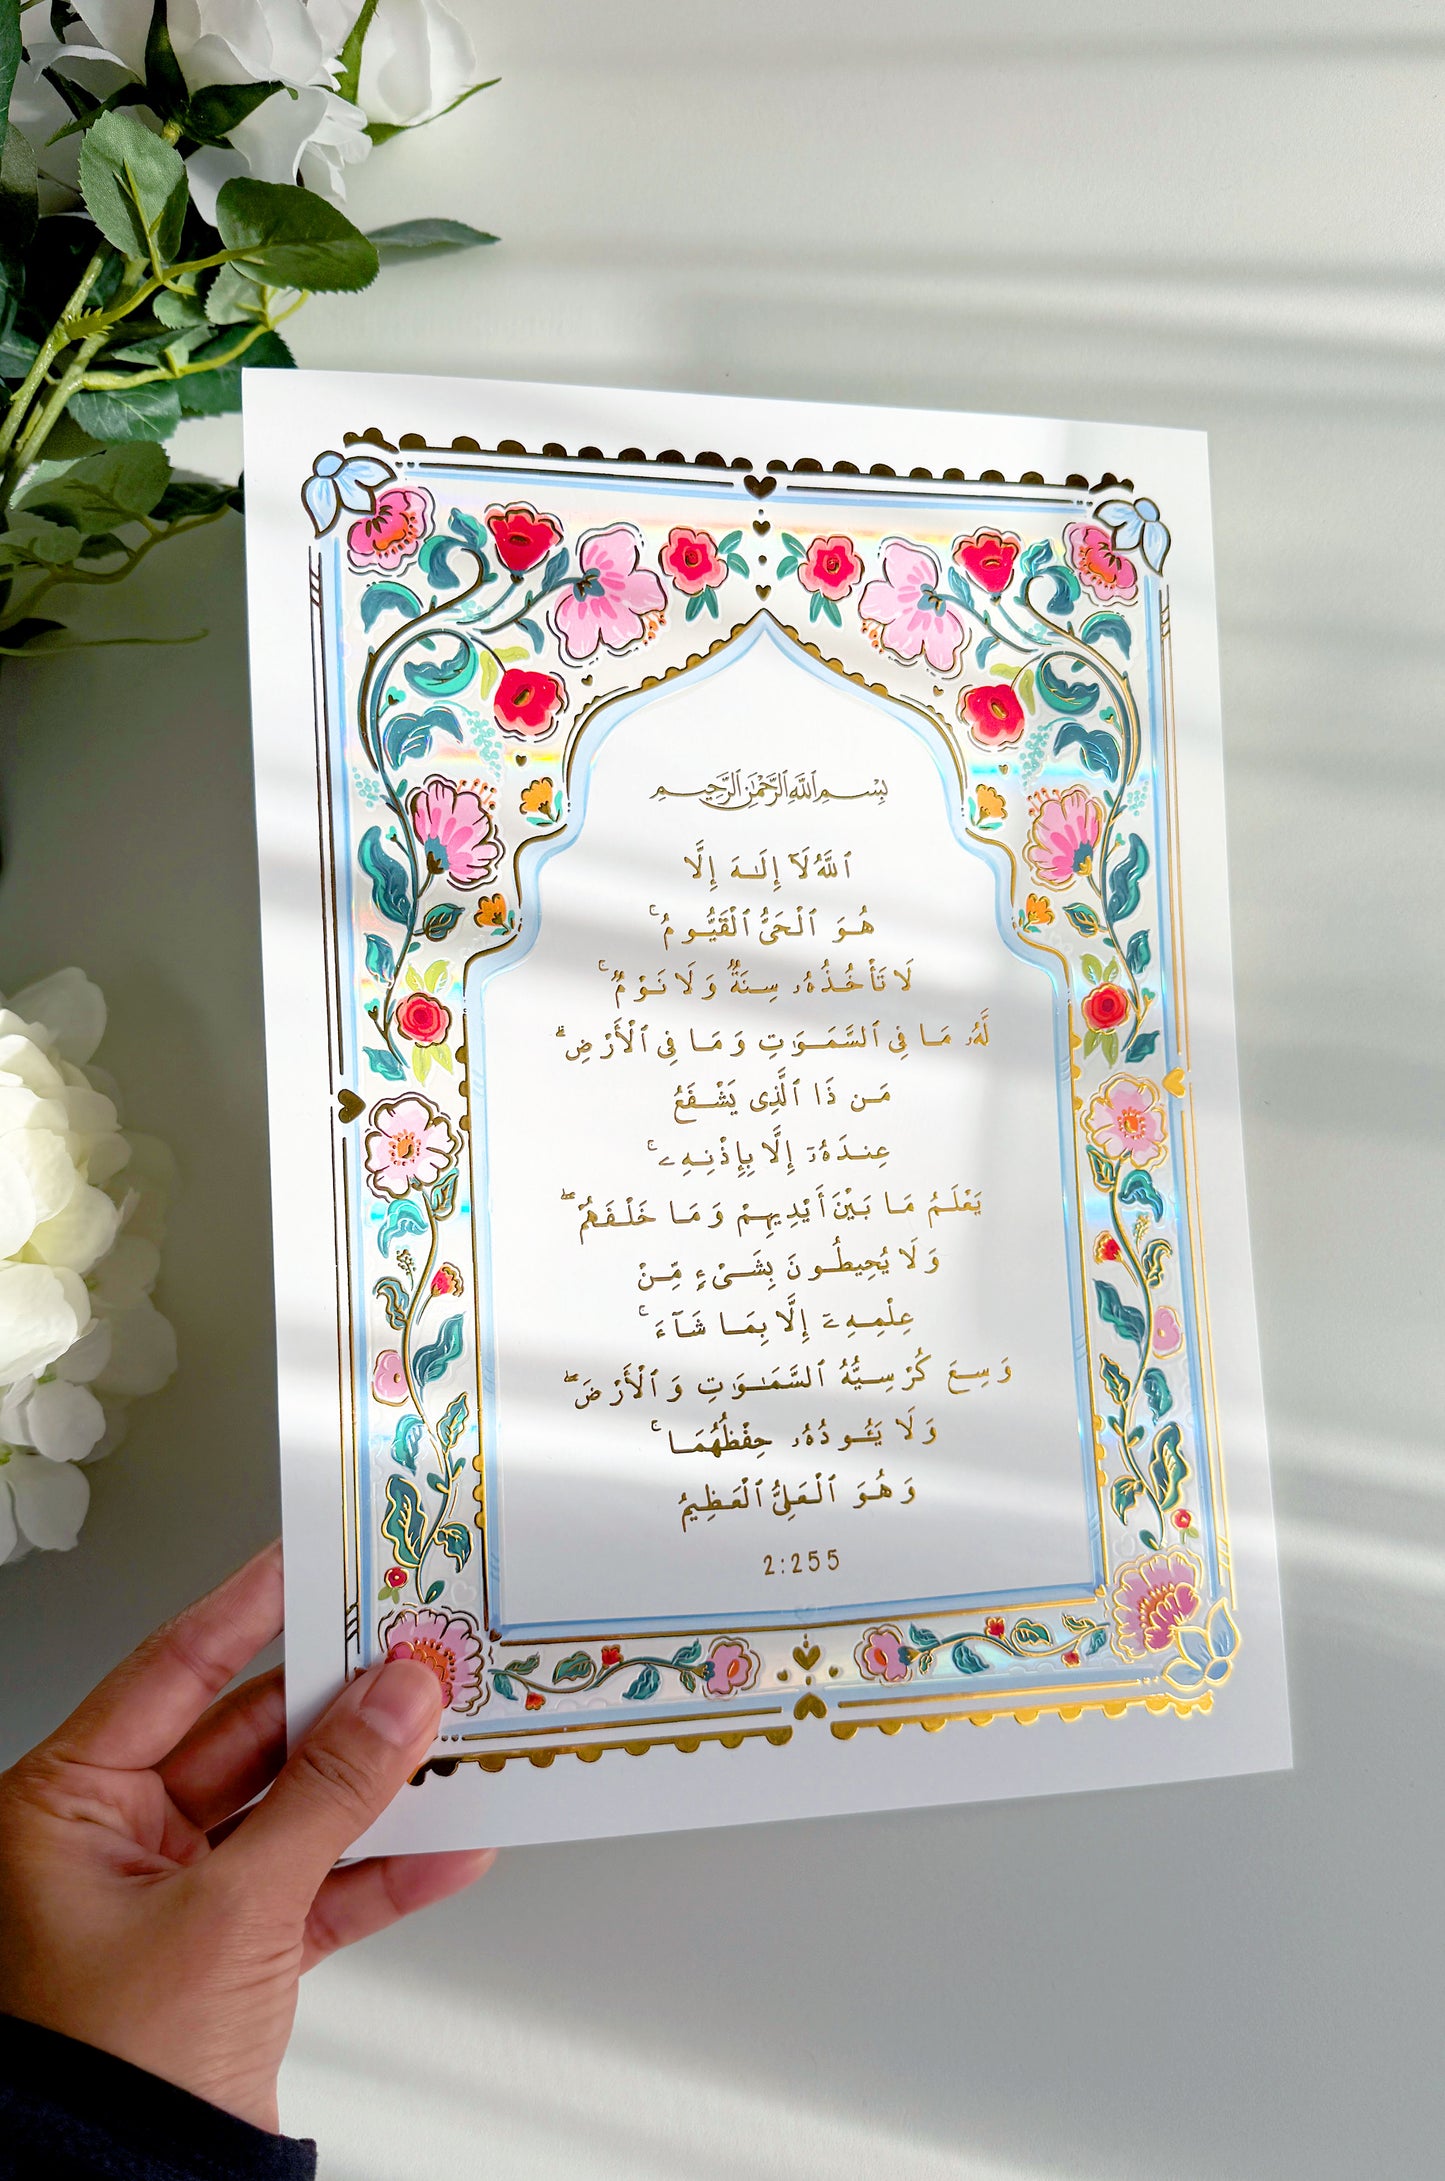 بِسْمِ ٱللَّهِ ٱلرَّحْمَٰنِ ٱلرَّحِيمِ
ٱللَّهُ لَآ إِلَـٰهَ إِلَّا
هُوَ ٱلْحَىُّ ٱلْقَيُّومُ ۚ
لَا تَأْخُذُهُۥ سِنَةٌۭ وَلَا نَوْمٌۭ ۚ
لَّهُۥ مَا فِى ٱلسَّمَـٰوَٰتِ وَمَا فِى ٱلْأَرْضِ ۗ
مَن ذَا ٱلَّذِى يَشْفَعُ
عِندَهُۥٓ إِلَّا بِإِذْنِهِۦ ۚ
يَعْلَمُ مَا بَيْنَ أَيْدِيهِمْ وَمَا خَلْفَهُمْ ۖ
وَلَا يُحِيطُونَ بِشَىْءٍۢ مِّنْ
عِلْمِهِۦٓ إِلَّا بِمَا شَآءَ ۚ
وَسِعَ كُرْسِيُّهُ ٱلسَّمَـٰوَٰتِ وَٱلْأَرْضَ ۖ
وَلَا يَـُٔودُهُۥ حِفْظُهُمَا ۚ
وَهُوَ ٱلْعَلِىُّ ٱلْعَظِيمُ
2:255